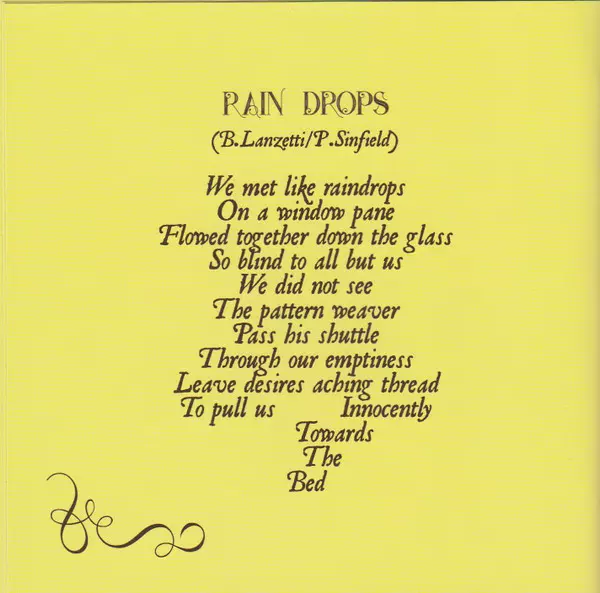 RAIN DROPS
(B.Lanzetti/P.Sinfield)
We met like raindrops
On a window pane
Flowed together down the glass
So blind to all but us
We did not see
The pattern weaver
Pass his shuttle
Through our emptiness
Leave desires aching thread
To pull us Innocently
Towards
The
Bed